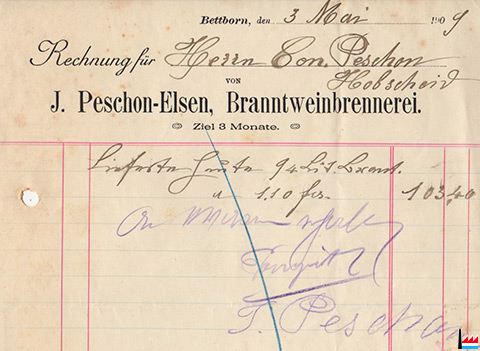 Bettborn, den 3 Mai 1909
Rechnung für Herrn Con. Peschon
Hobscheid
VON
J. Peschon-Elsen, Branntweinbrennerei.
Ziel 3 Monate.
Lieferte heute 94 Lit. Brant.
a 1.10 frs. 103,40
J. Peschon